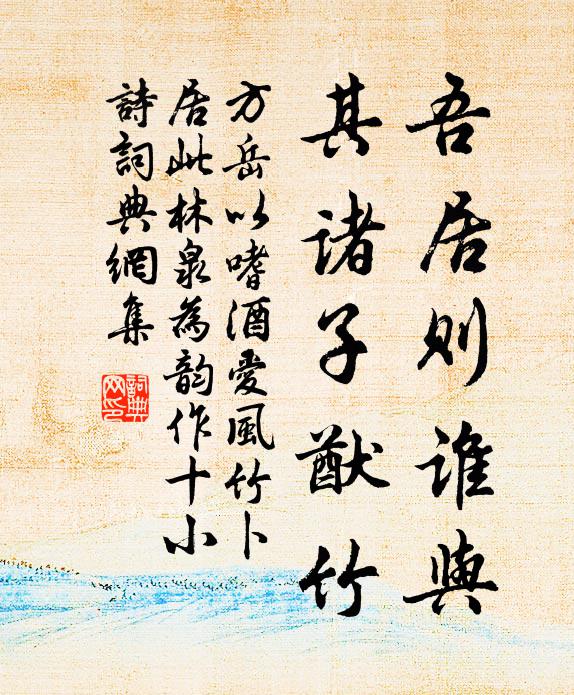 吾居则谁與
其诸子猷竹
方岳以嗜酒愛風竹卜
居此林泉為韵作十小
詩詞典網集
詞典网印